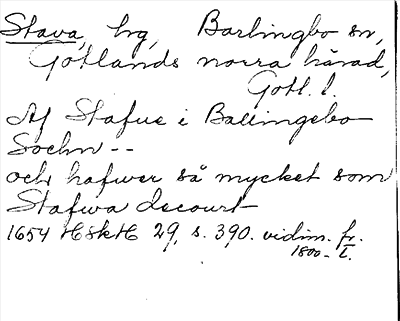 Stava, hg, Barlingbo sn,
Gotlands norra härad,
Gotl. l.
Af Stafue i Ballingebo
Sochn --
och hafwer så mycket som
Stafwa decourt
1654 HSkH 29, s. 390. vidim. fr.
1800-t.